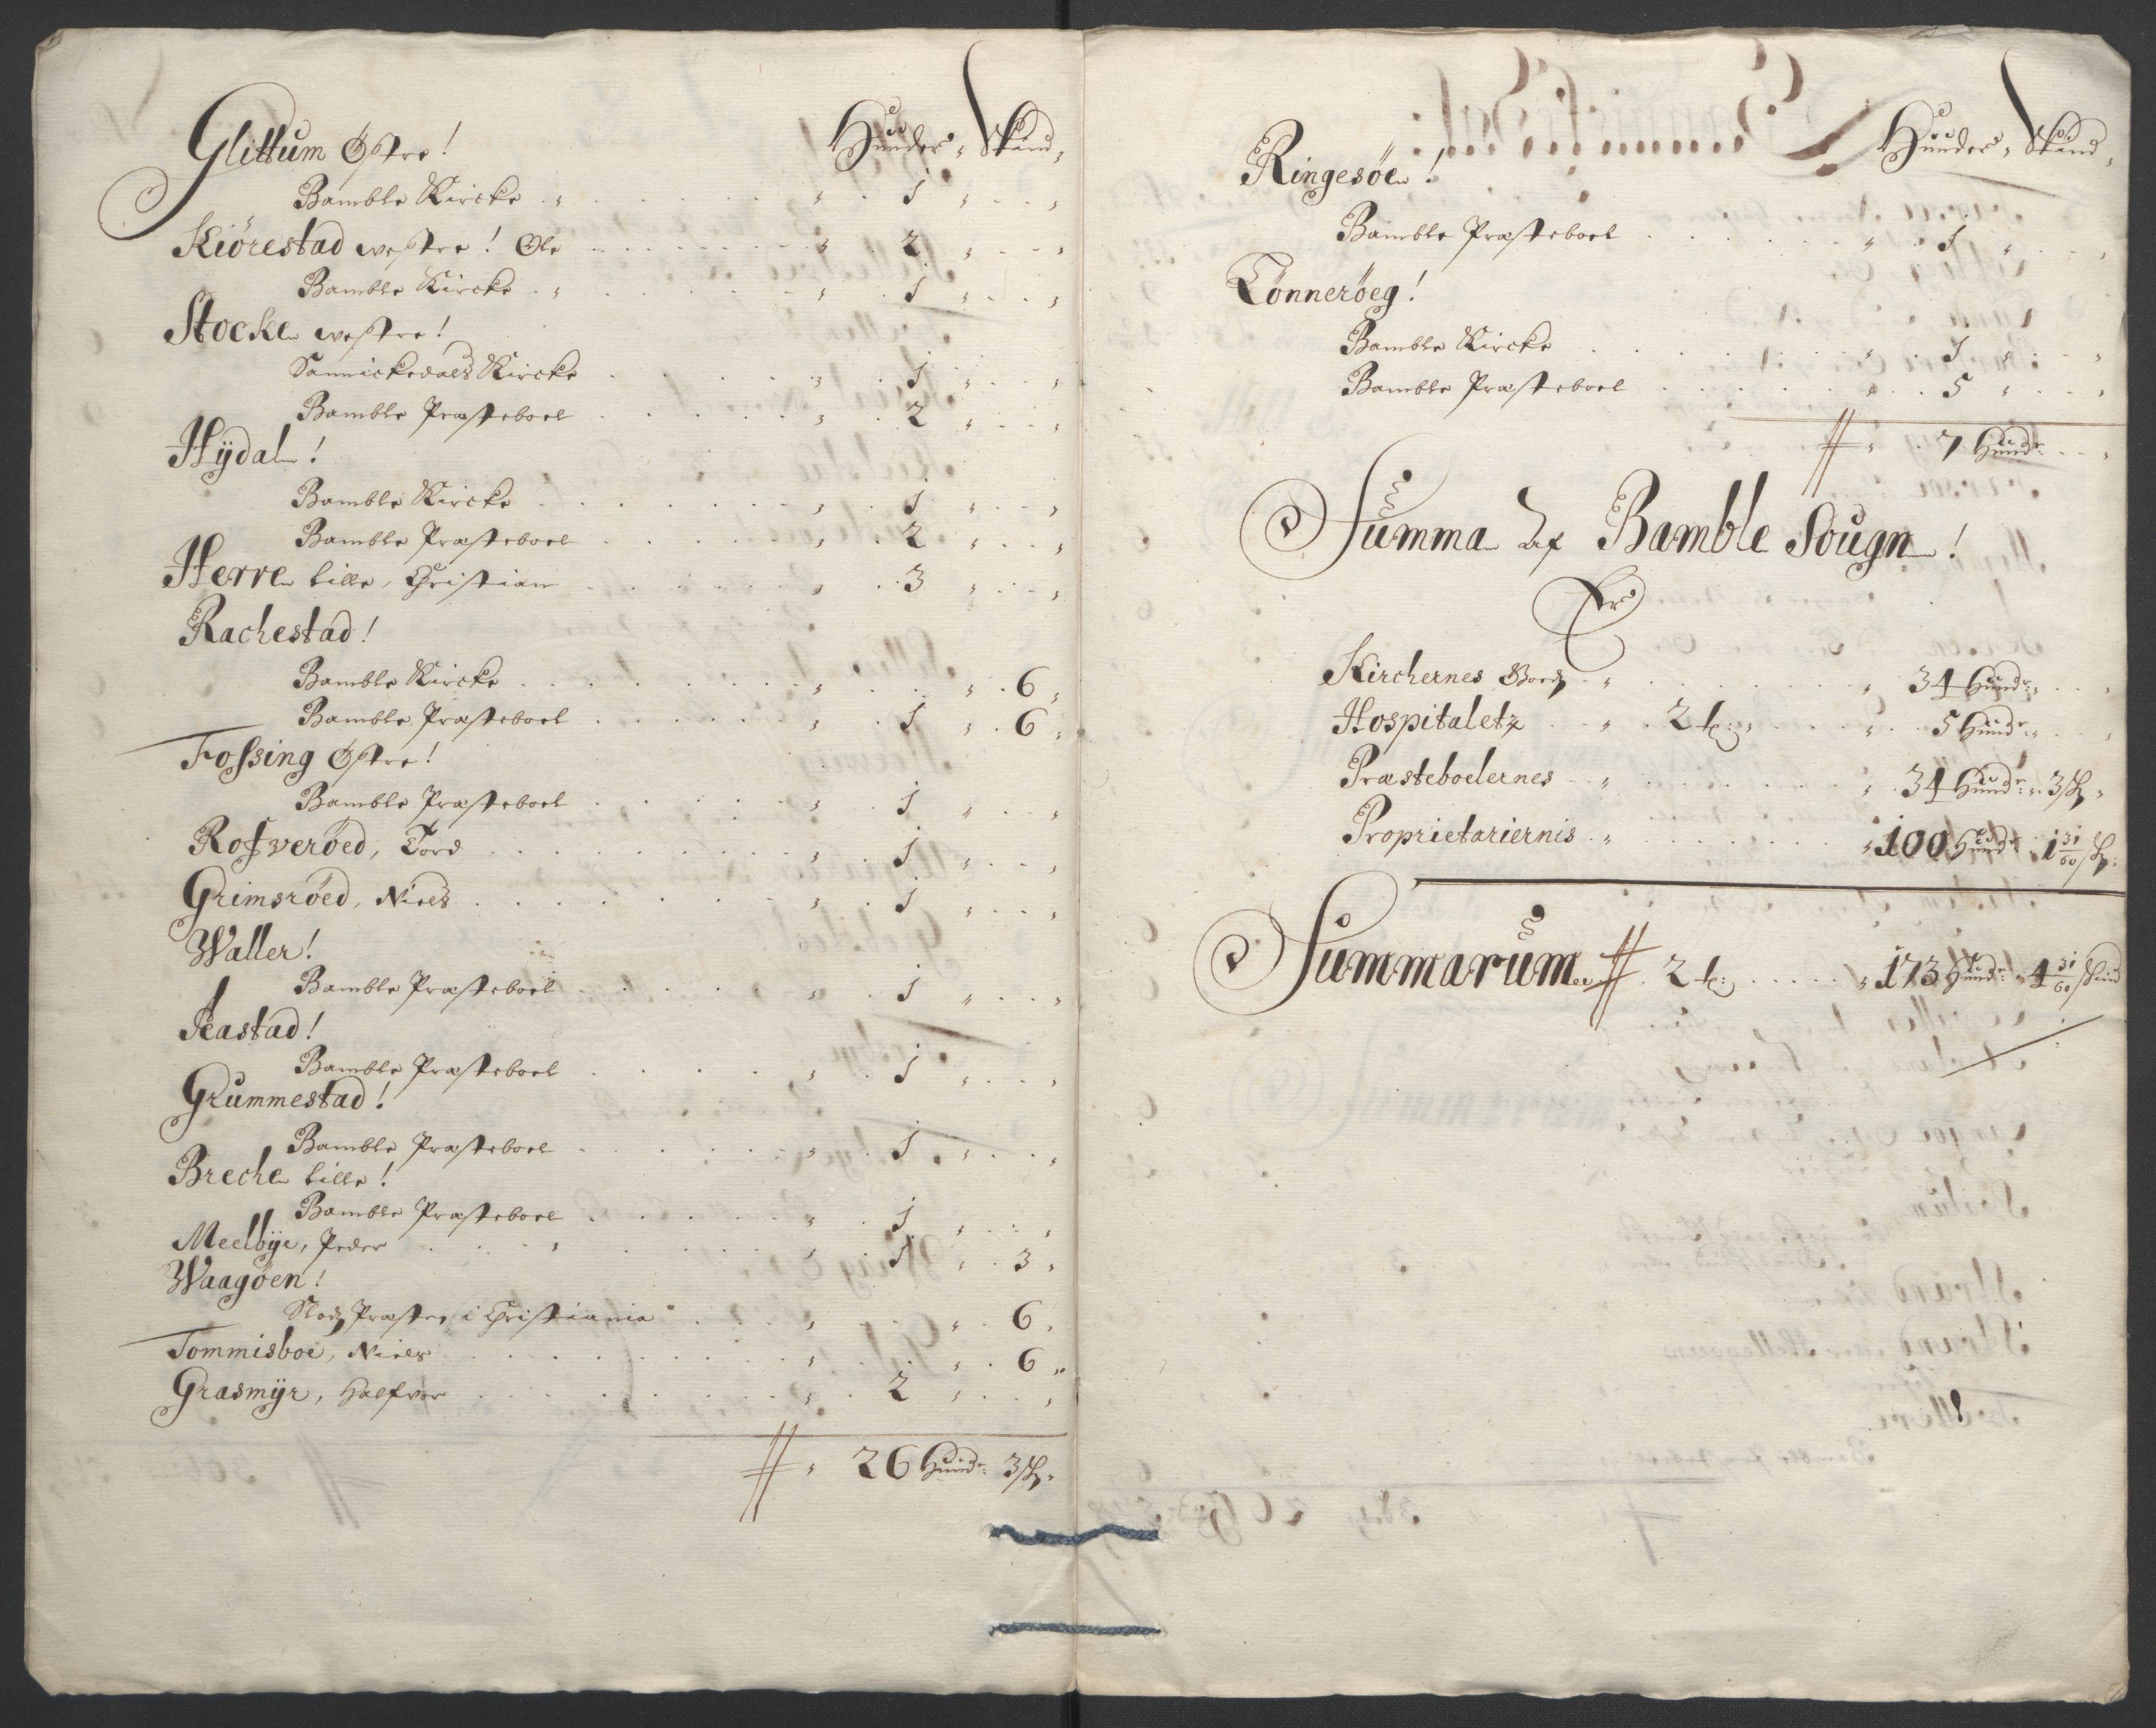 Hunder, Skind,
Glittum Østre!
Bamble Kircke . „ . . . . . „ . 1 „ . . „
Kiörestad westre! Ole . . . . . „ 2 „ . . „
Bamble Kircke . „ . . . . . „ . 1 „ . . „
Stocke westre!
Sannickedals Kircke . . . . „ . 1 „ . . „
Bamble Præsteboel . . . . . „ . 2 „ . . „
Hÿdal!
Bamble Kircke . . . . . . „ . 1 „ . . „
Bamble Præsteboel . . . . . „ . 2 „ . . „
Herre lille, Christian . . . . . „ . 3 „ . . „
Rachestad!
Bamble Kircke . . . . . . „ . . „ . 6 „
Bamble Præsteboel . . . . . „ . 1 „ . 6 „
Fossing Østre!
Bamble Præsteboel . . . . . „ . 1 „ . . „
Rofveröed, Tord . . . . . . „ . 1 „ . . „
Grimsröed, Niels . . . . . . „ . 1 „ . . „
Waller!
Bamble Præsteboel . . . . . „ . 1 „ . . „
Aastad!
Bamble Præsteboel . . . . . „ . 1 „ . . „
Grummestad!
Bamble Præsteboel . . . . . „ . 1 „ . . „
Breche lille!
Bamble Præsteboel . . . . . „ . 1 „ . . „
Meelbÿe, Peder . . . „ . . . „ . 1 „ . 3 „
Waagöen!
Slodz Præsten i Christiania . . . „ . . „ . 6 „
Tommisboe, Niels . . . . . . „ . . „ . 6 „
Grasmÿr, Halfvor . . . . . . „ . 2 „ . . „
„ 26 Hund: 3 sk: „
Hunder, Skind,
Ringesöe!
Bamble Præsteboel . . . . . „ . 1 „ . . „
Tönneröeg!
Bamble Kircke . . . . . . „ . 1 „ . . „
Bamble Præsteboel . . . . . „ . 5 „ . . „
„ . 7 Hund: . . „
Summa af Bamble Sougn!
Er
Kirchernes Goedz . „ . . . . . „ 34 Hund: „ . . „
Hospitaletz . . „ . 2 t: „ . . . „ . 5 Hund: „ . . „
Præsteboelernes . „ . . . . . „ . 34 Hund: „ . 3 sk: „
Proprietariernis . „ . . . . . „ 100 Hund: . 1 31/60 sk:
Summarum . 2 t: . . . . „ 173 Hund: „ 4 31/60 skind